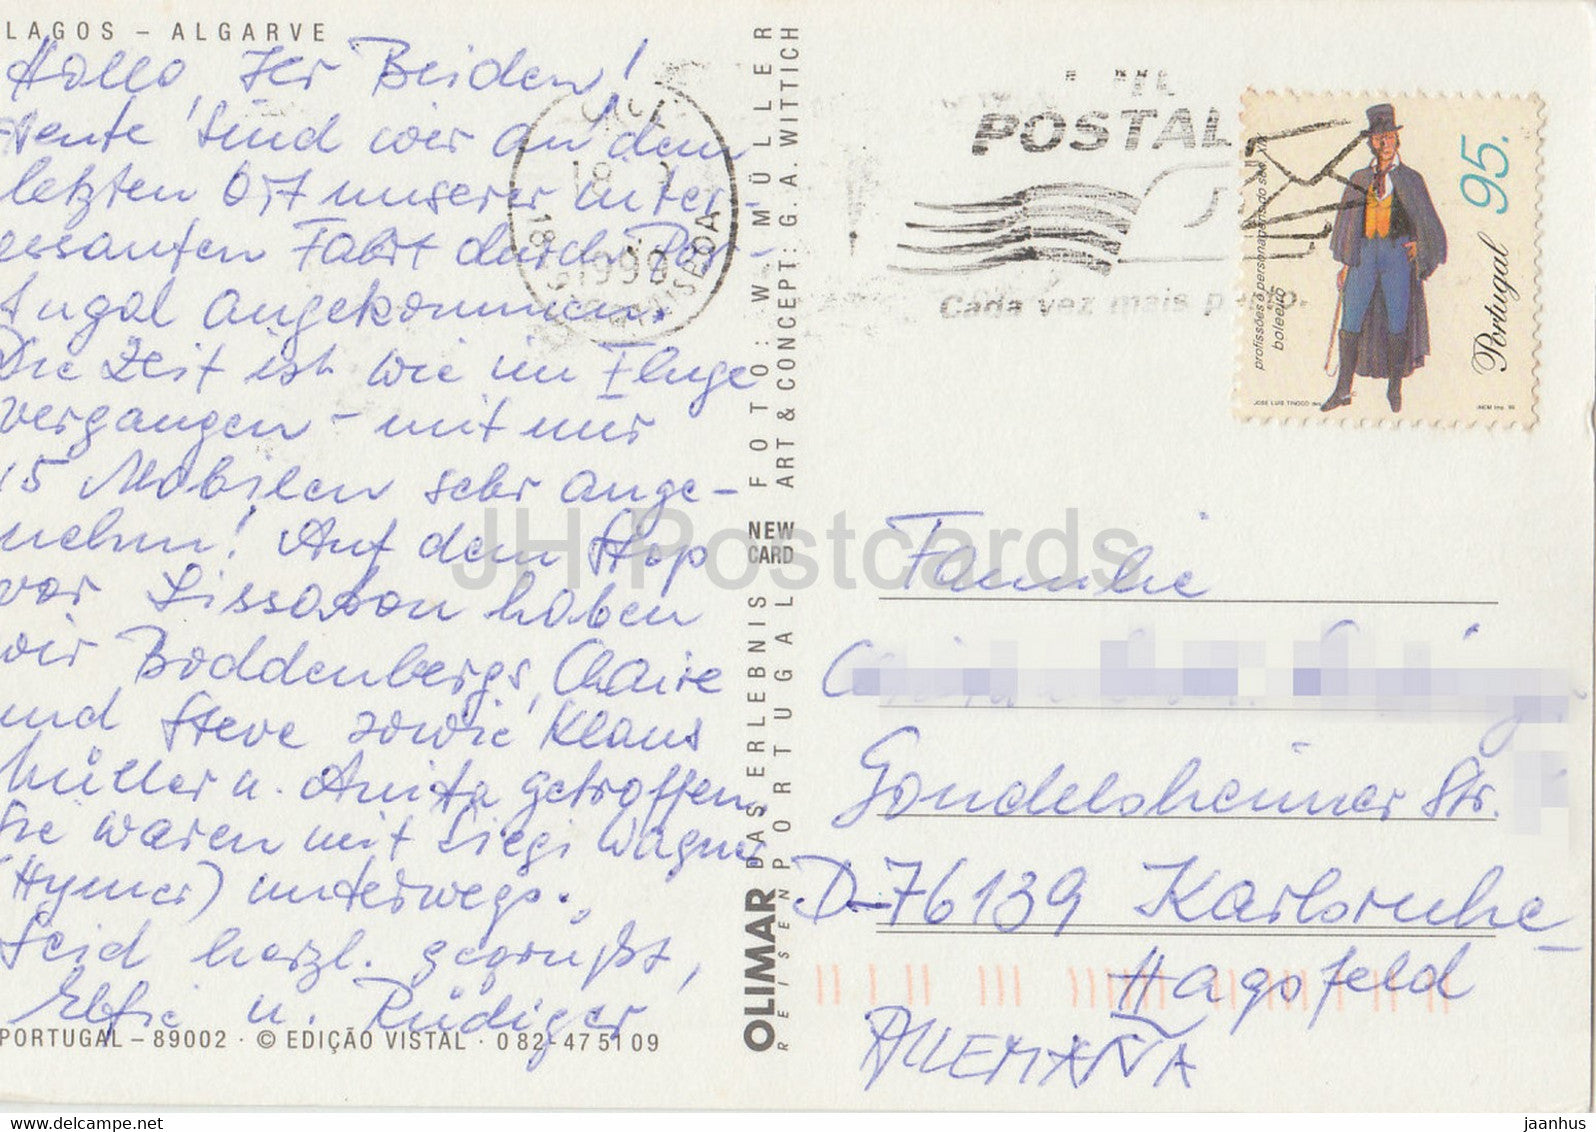 LAGOS – ALGARVE
Hallo, Ihr Beiden!
Heute sind wir an dem
letzten Ort unserer inter-
essanten Fahrt durch Por-
tugal angekommen.
Die Zeit ist wie im Fluge
vergangen – mit nur
15 Mobilen sehr ange-
nehm! Auf dem Stop
vor Lissabon haben
wir Boddenbergs, Claire
und Steve sowie Klaus
Müller u. Anita getroffen
Sie waren mit Siegi Wagner
(Hymer) unterwegs.
Seid herzl. gegrüßt,
u. Rüdiger
PORTUGAL – 89002 · © EDIÇÃO VISTAL · 082-475109
OLIMAR DAS ERLEBNIS NEW FOTO: W. MÜLLER
REISEN PORTUGAL CARD ART & CONCEPT: G. A. WITTICH
18
1999
POSTAL
Cada vez mais p
profissões e personagens do séc. XIX
boleeiro
95.
Portugal
JOSÉ LUIS TINOCO des.
INCM Imp.
Familie
Gondelsheimer Str.
D-76139 Karlsruhe-
Hagsfeld
ALLEMAÑA
JH Postcards
www.delcampe.net
jaanhus